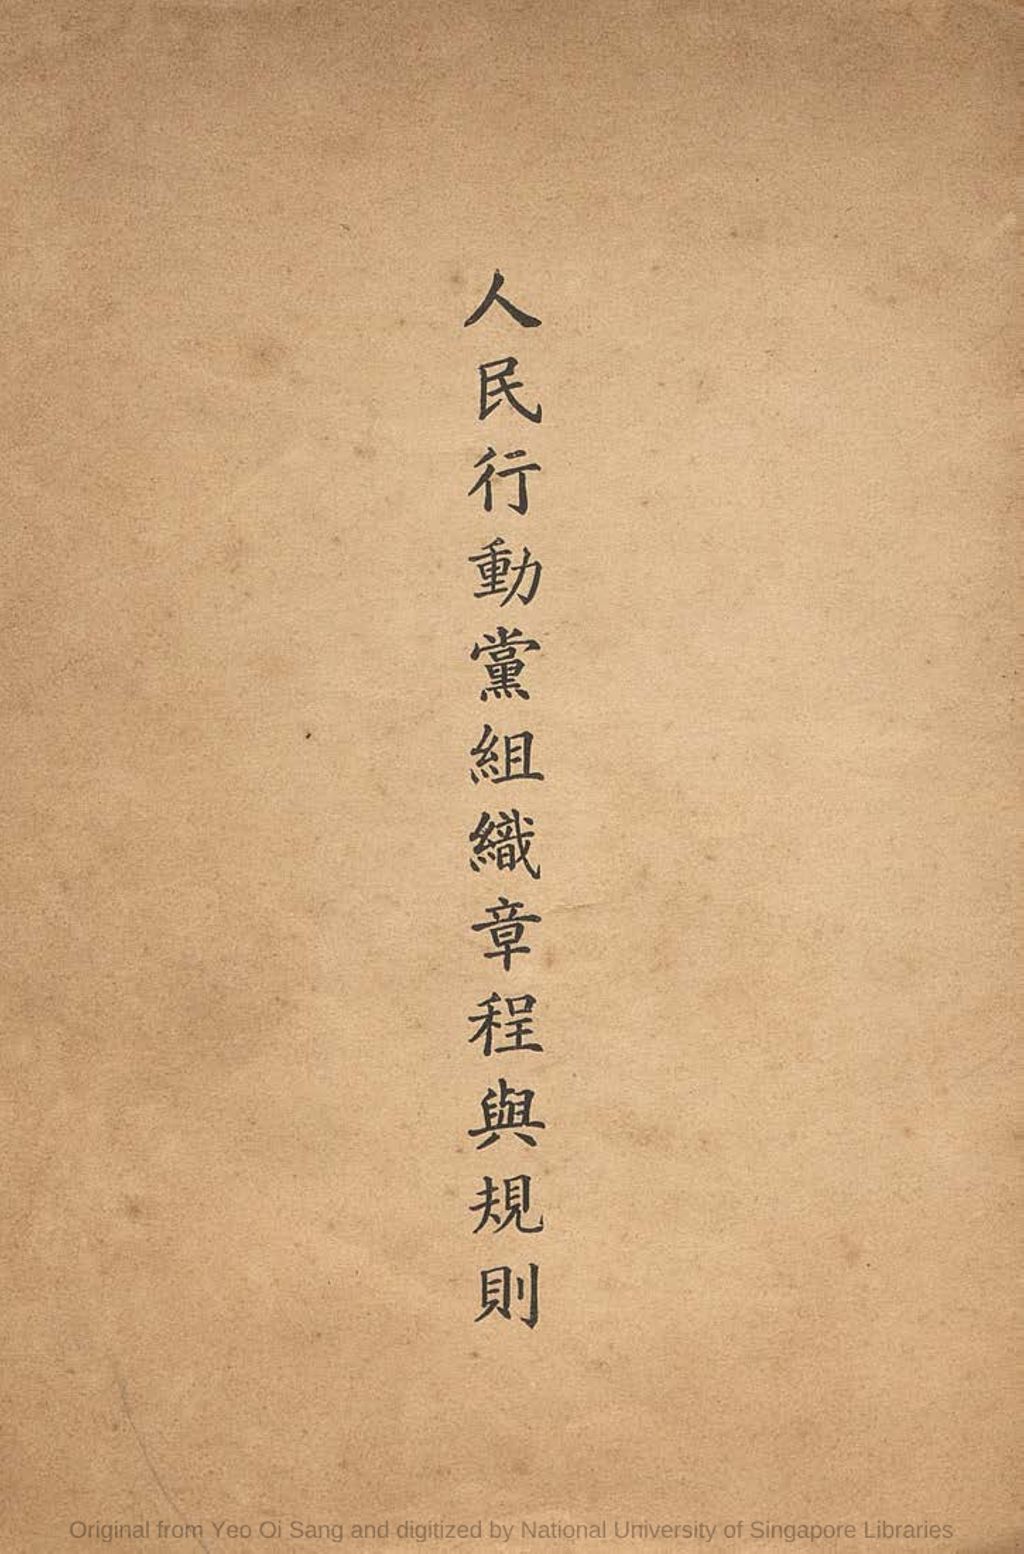 人民行動黨組織章程與規則
Original from Yeo Oi Sang and digitized by National University of Singapore Libraries